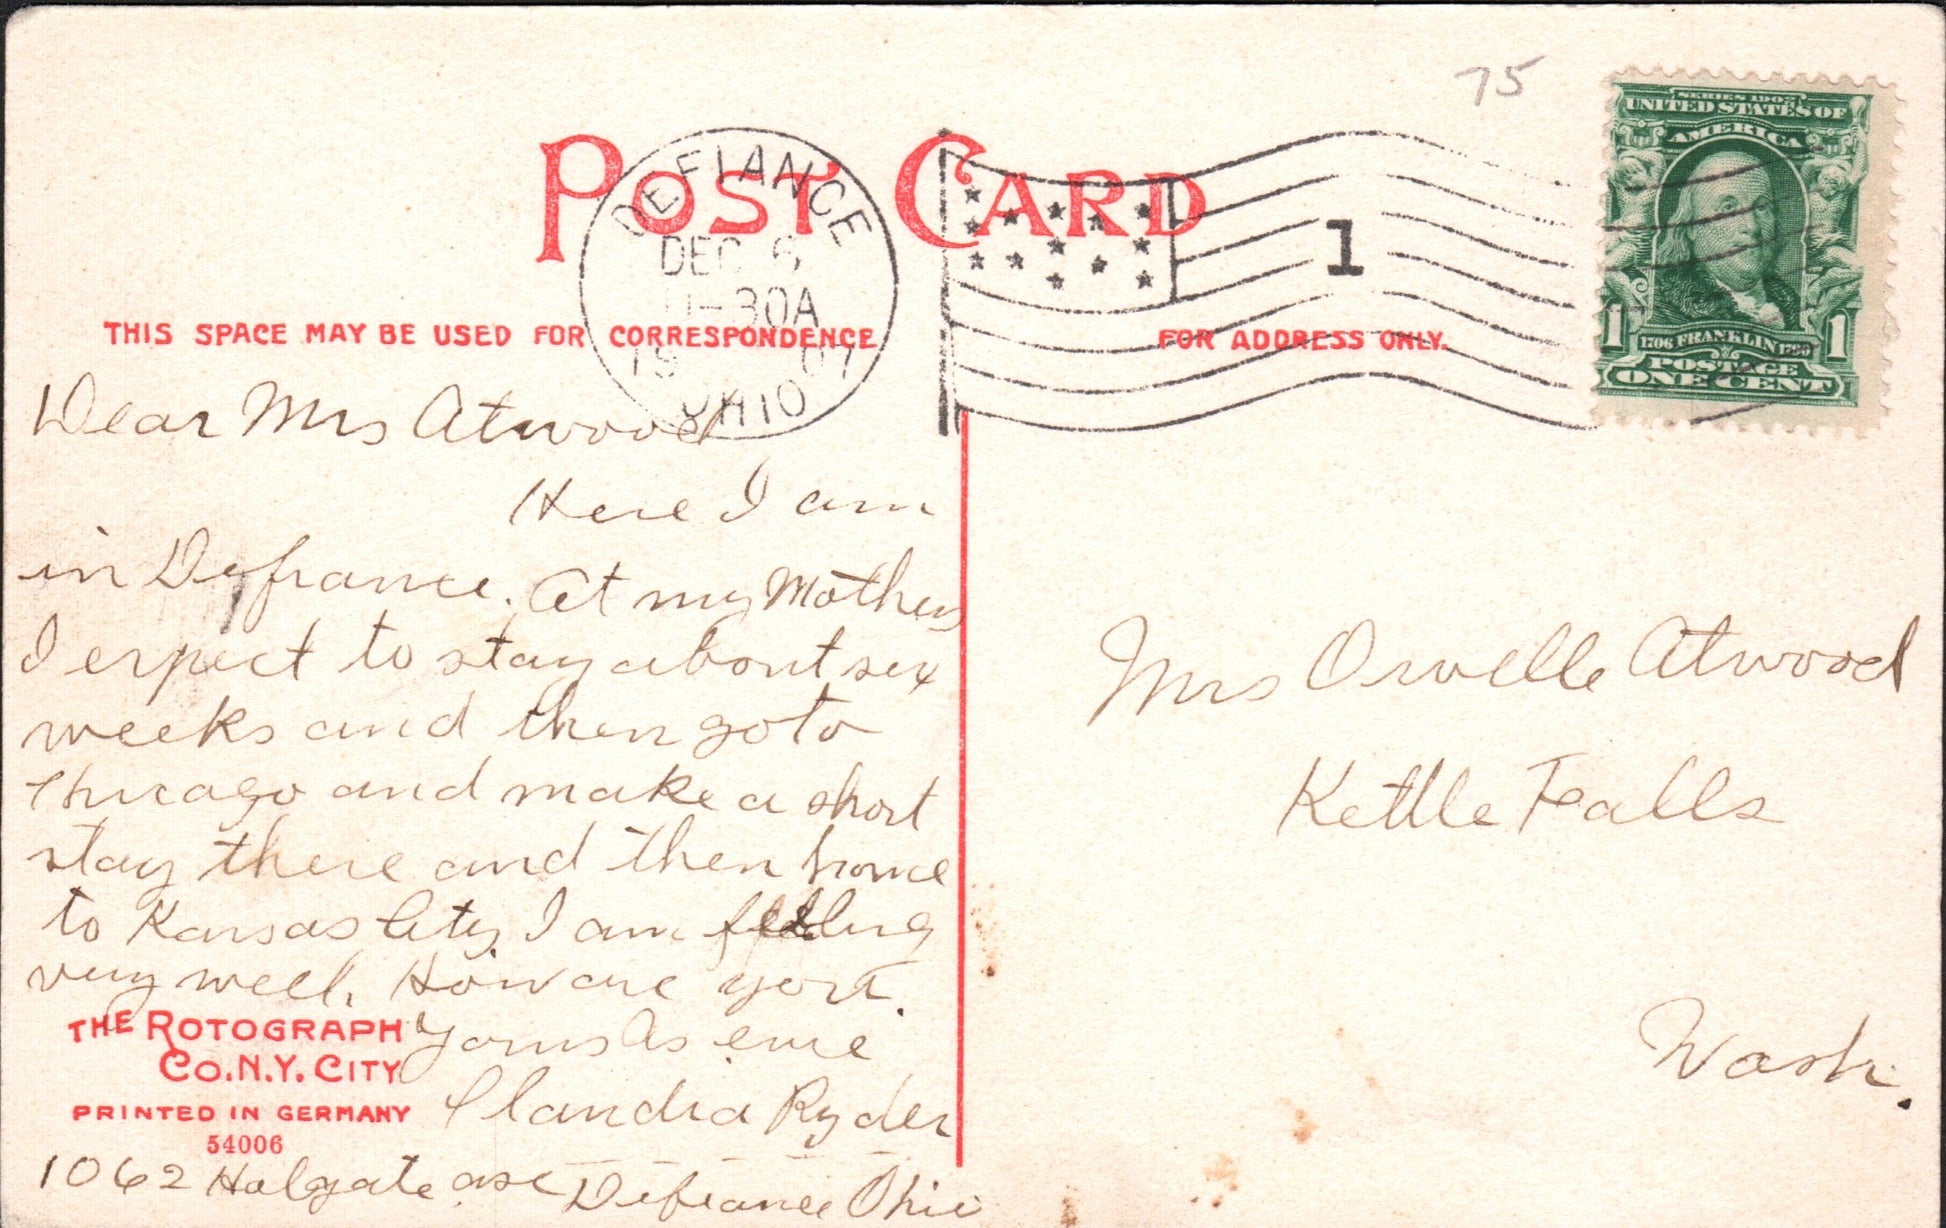 75
SERIES 1902
UNITED STATES OF
AMERICA
1706 FRANKLIN 1790
1 1
POSTAGE
ONE CENT
POST CARD
DEFIANCE
DEC 6
-30A
19 07
OHIO
1
THIS SPACE MAY BE USED FOR CORRESPONDENCE
FOR ADDRESS ONLY.
Dear Mrs Atwood
Here I am
in Defiance. At my Mothers
I expect to stay about six
weeks and then go to
Chicago and make a short
stay there and then home
to Kansas City. I am feeling
very well. How are you.
Yours As ever
Claudia Ryder
1062 Holgate ave Defiance Ohio
THE ROTOGRAPH
CO. N.Y. CITY
PRINTED IN GERMANY
54006
Mrs Orville Atwood
Kettle Falls
Wash.